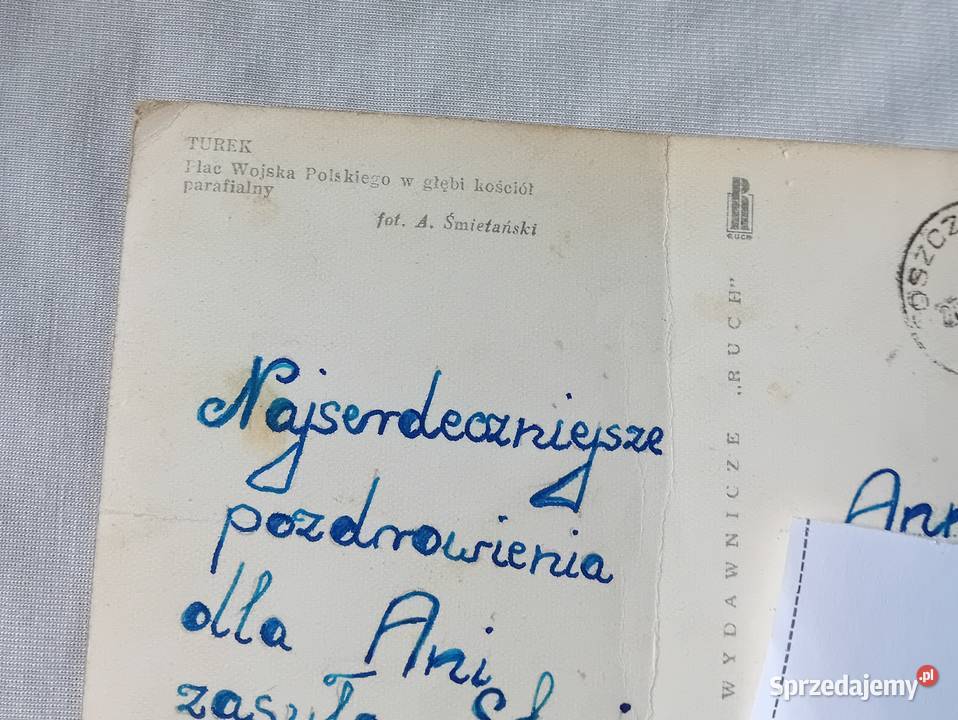 TUREK
Plac Wojska Polskiego w głębi kościół
parafialny
fot. A. Śmietański
RUCH
WYDAWNICZE "RUCH"
OSZCZ
Najserdeczniejsze
pozdrowienia
dla Ani
zasyła
Sprzedajemy.pl